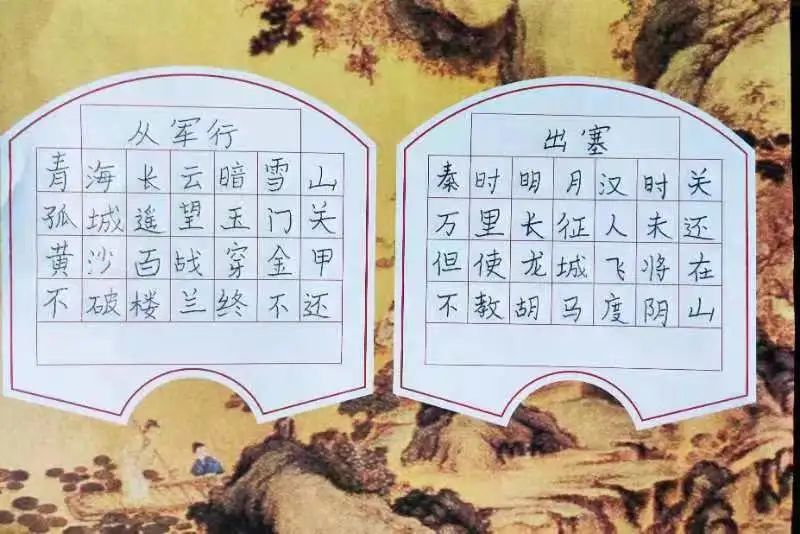 从军行
青海长云暗雪山
孤城遥望玉门关
黄沙百战穿金甲
不破楼兰终不还
出塞
秦时明月汉时关
万里长征人未还
但使龙城飞将在
不教胡马度阴山